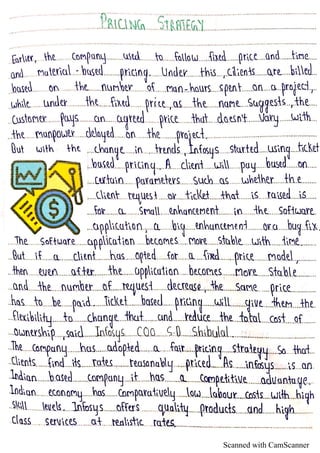 PRICING STRATEGY
Earlier, the company used to follow fixed price and time
and material-based pricing. Under this, clients are billed
based on the number of man-hours spent on a project,
while under the fixed price, as the name suggests, the
customer pays an agreed price that doesn't vary with
the manpower delayed on the project.
But with the change in trends, Infosys started using ticket
based pricing. A client will pay based on
certain parameters such as whether the
client request or ticket that is raised is
for a small enhancement in the software
application, a big enhancement or a bug fix.
The software application becomes more stable with time.
But if a client has opted for a fixed price model,
then even after the application becomes more stable
and the number of request decrease, the same price
has to be paid. Ticket based pricing will give them the
flexibility to change that and reduce the total cost of
ownership, said Infosys COO S.D Shibulal.
The company has adopted a fair pricing strategy so that
clients find its rates reasonably priced. As infosys is an
Indian based company it has a competitive advantage.
Indian economy has comparatively low labour costs with high
skill levels. Infosys offers quality products and high
class services at realistic rates.
Scanned with CamScanner